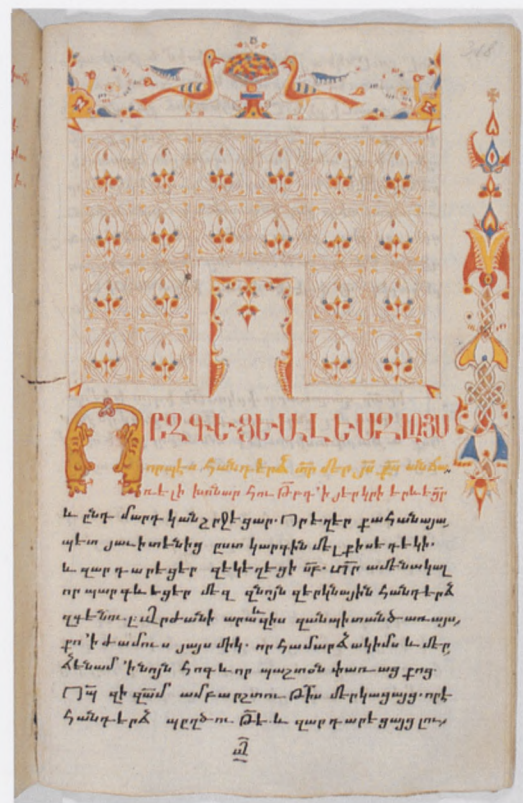 ՈՐԶԳԵՑԵԱԼԵՍԶԼՈՅՍ
որպէս հանդերձ տր մեր յս քս անճա
ռելի խոնարհու թբ ՚ի յերկրի երևեցր
և ընդ մարդկան շրջեցար. Որ եղեր քահանայա
պետ յաւիտենից ըստ կարգին մելքիսեդեկի.
և զարդարեցեր զեկեղեցի սբ. տր ամենակալ
որ պարգևեցեր մեզ զնոյն զերկնային հանդերձ
զգենուլ. արժանի արա զիս զանպիտանծառայս
քո ՚ի ժամուս յայսմիկ. որ համարձակիմս և մեր
ձենամ ՚ի նոյն հոգևոր պաշտօն փառաց քոց.
Որպ զի զամ ամբարշտու թիս մերկացայց. որէ
հանդերձ պղծու թե և զարդարեցայց լու